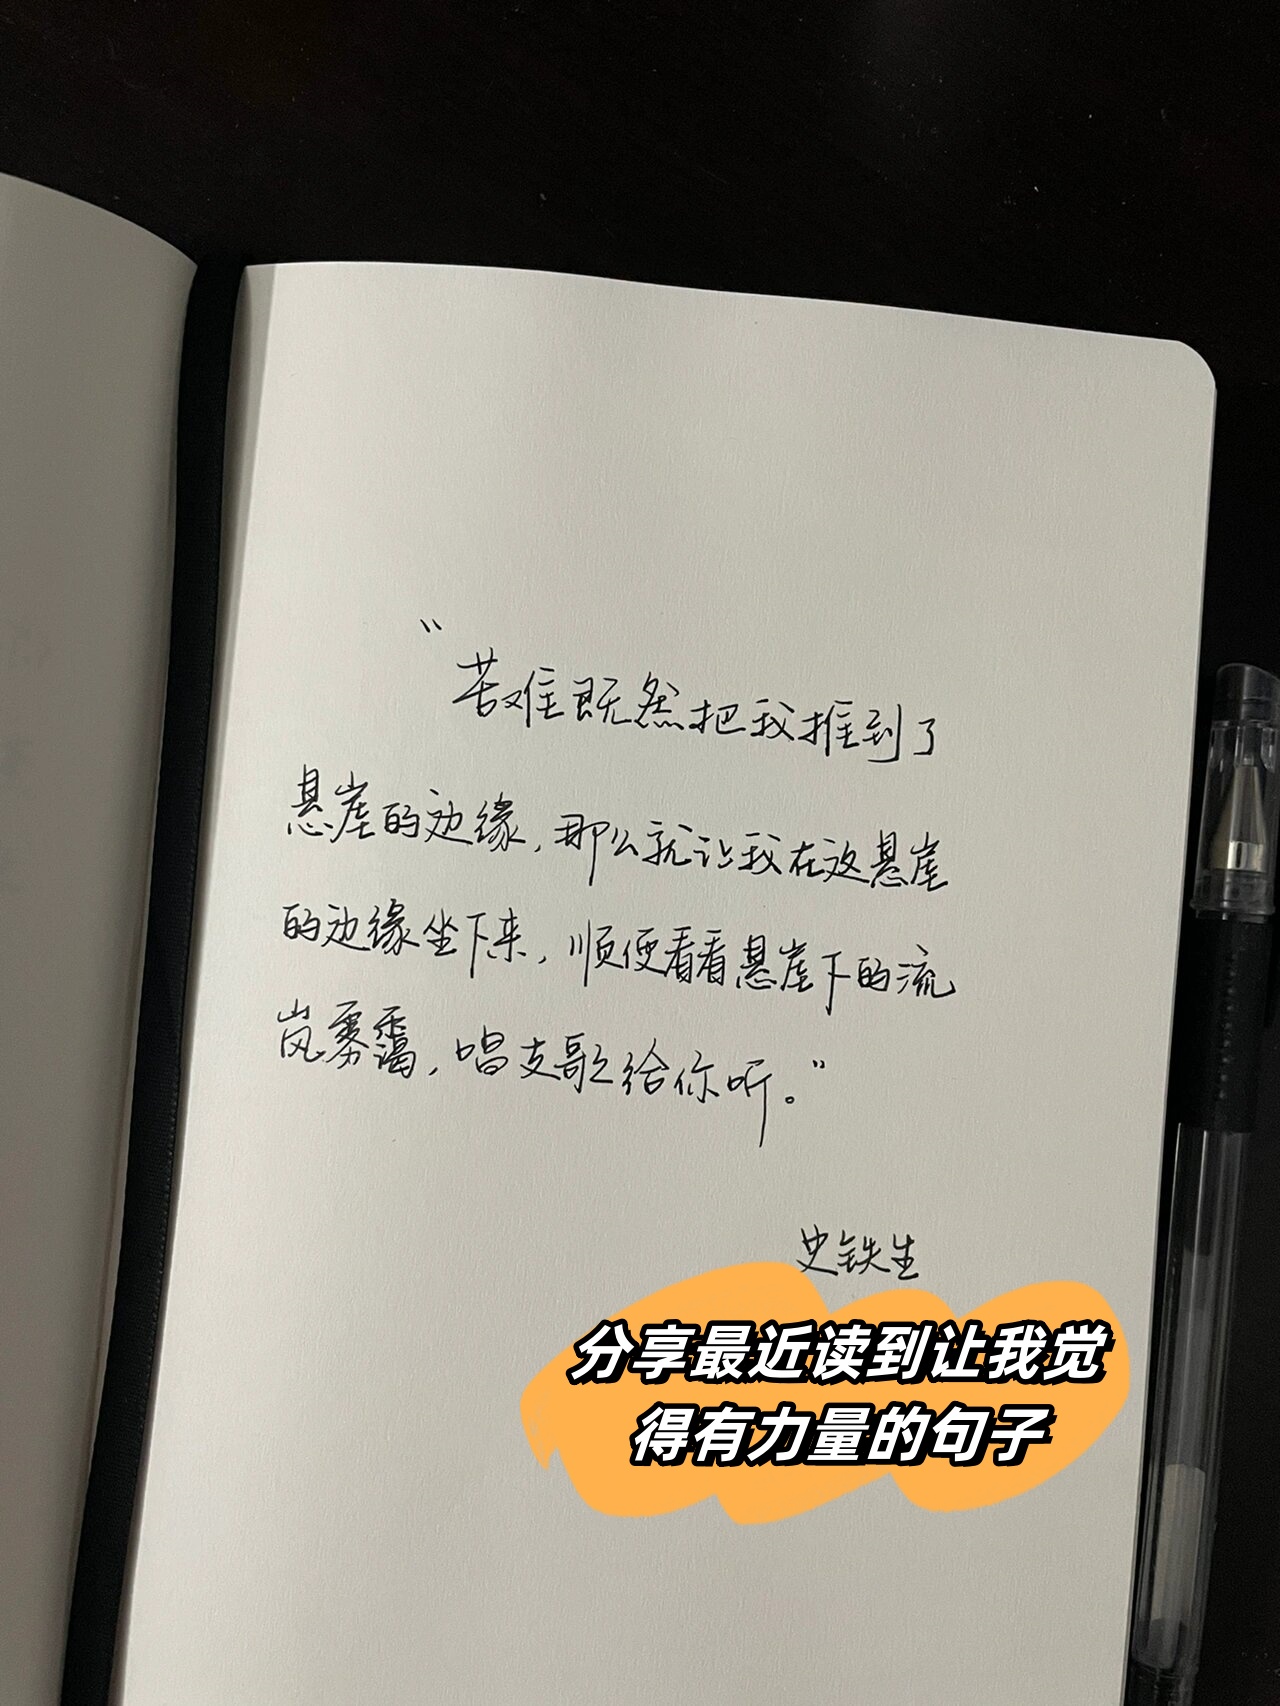 “苦难既然把我推到了
悬崖的边缘，那么就让我在这悬崖
的边缘坐下来，顺便看看悬崖下的流
岚雾霭，唱支歌给你听。”
史铁生
分享最近读到让我觉
得有力量的句子